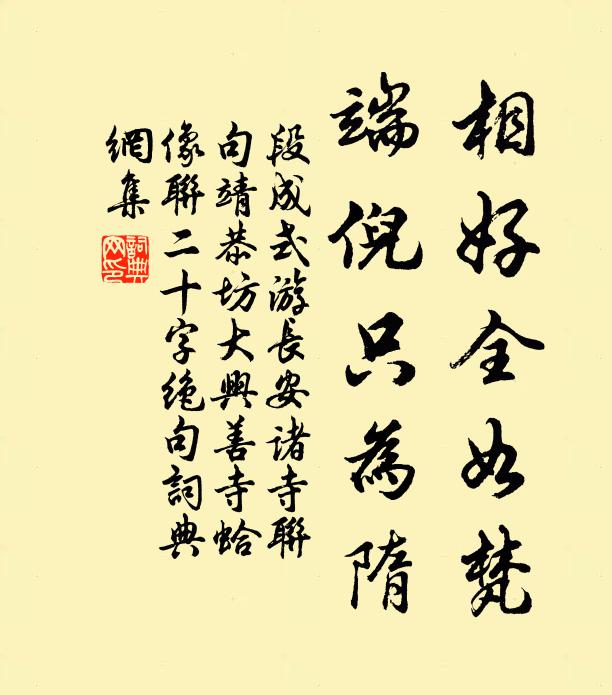 相好全如梵
端倪只為隋
段成式游長安諸寺聯
句靖恭坊大興善寺蛤
像聯二十字絶句詞典
網集
詞典
网印